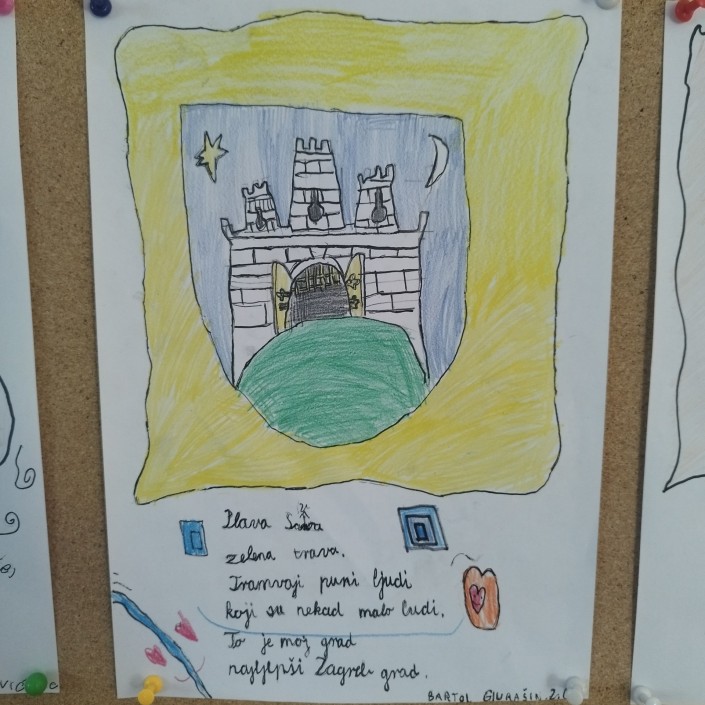 Plava Sava
zelena trava.
Tramvaji puni ljudi
koji su nekad malo ludi.
To je moj grad
najljepši Zagreb grad.
BARTOL GJURAŠIN 2.C